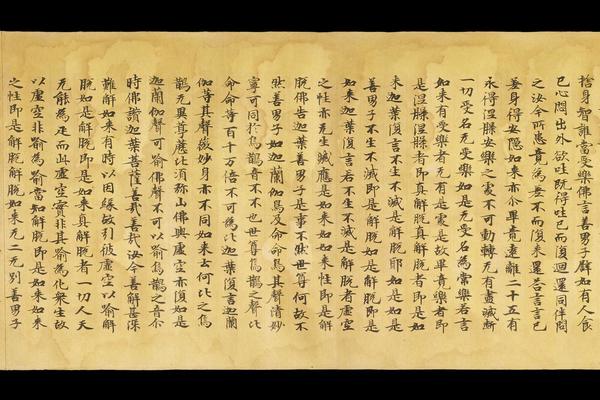 捨身智誰當受樂佛言善男子譬如有人食
已心悶出外欲吐既得吐已而復迴還同伴問
之汝今所患竟為差不而復來還答言已
差身得安隱如來亦尒畢竟遠離二十五有
永得涅槃安樂之處不可動轉无有盡滅斷
一切受名无受樂如是无受名為常樂若言
如來有受樂者无有是處是故畢竟樂者即
是涅槃涅槃者即真解脫真解脫者即是如
來迦葉復言不生不滅是解脫耶如是如是
善男子不生不滅即是解脫如是解脫即是
如來迦葉復言若不生不滅是解脫者虛空
之性亦无生滅應是如來如如來性即是解
脫佛告迦葉善男子是事不然世尊何故不
然善男子如迦蘭伽鳥及命命鳥其聲清妙
寧可同於烏鵲音不不也世尊烏鵲之聲比
命命等百千万倍不可為比迦葉復言迦蘭
伽等其聲微妙身亦不同如來云何比之烏
鵲无異葶藶比須弥山佛與虛空亦復如是
迦蘭伽聲可喻佛聲不可以喻烏鵲之音尒
時佛讚迦葉菩薩善哉善哉汝今善解甚深
難解如來有時以因緣故引彼虛空以喻解
脫如是解脫即是如來真解脫者一切人天
无能為疋而此虛空實非其喻為化眾生故
以虛空非喻為喻當知解脫即是如來如來
之性即是解脫解脫如來无二无別善男子